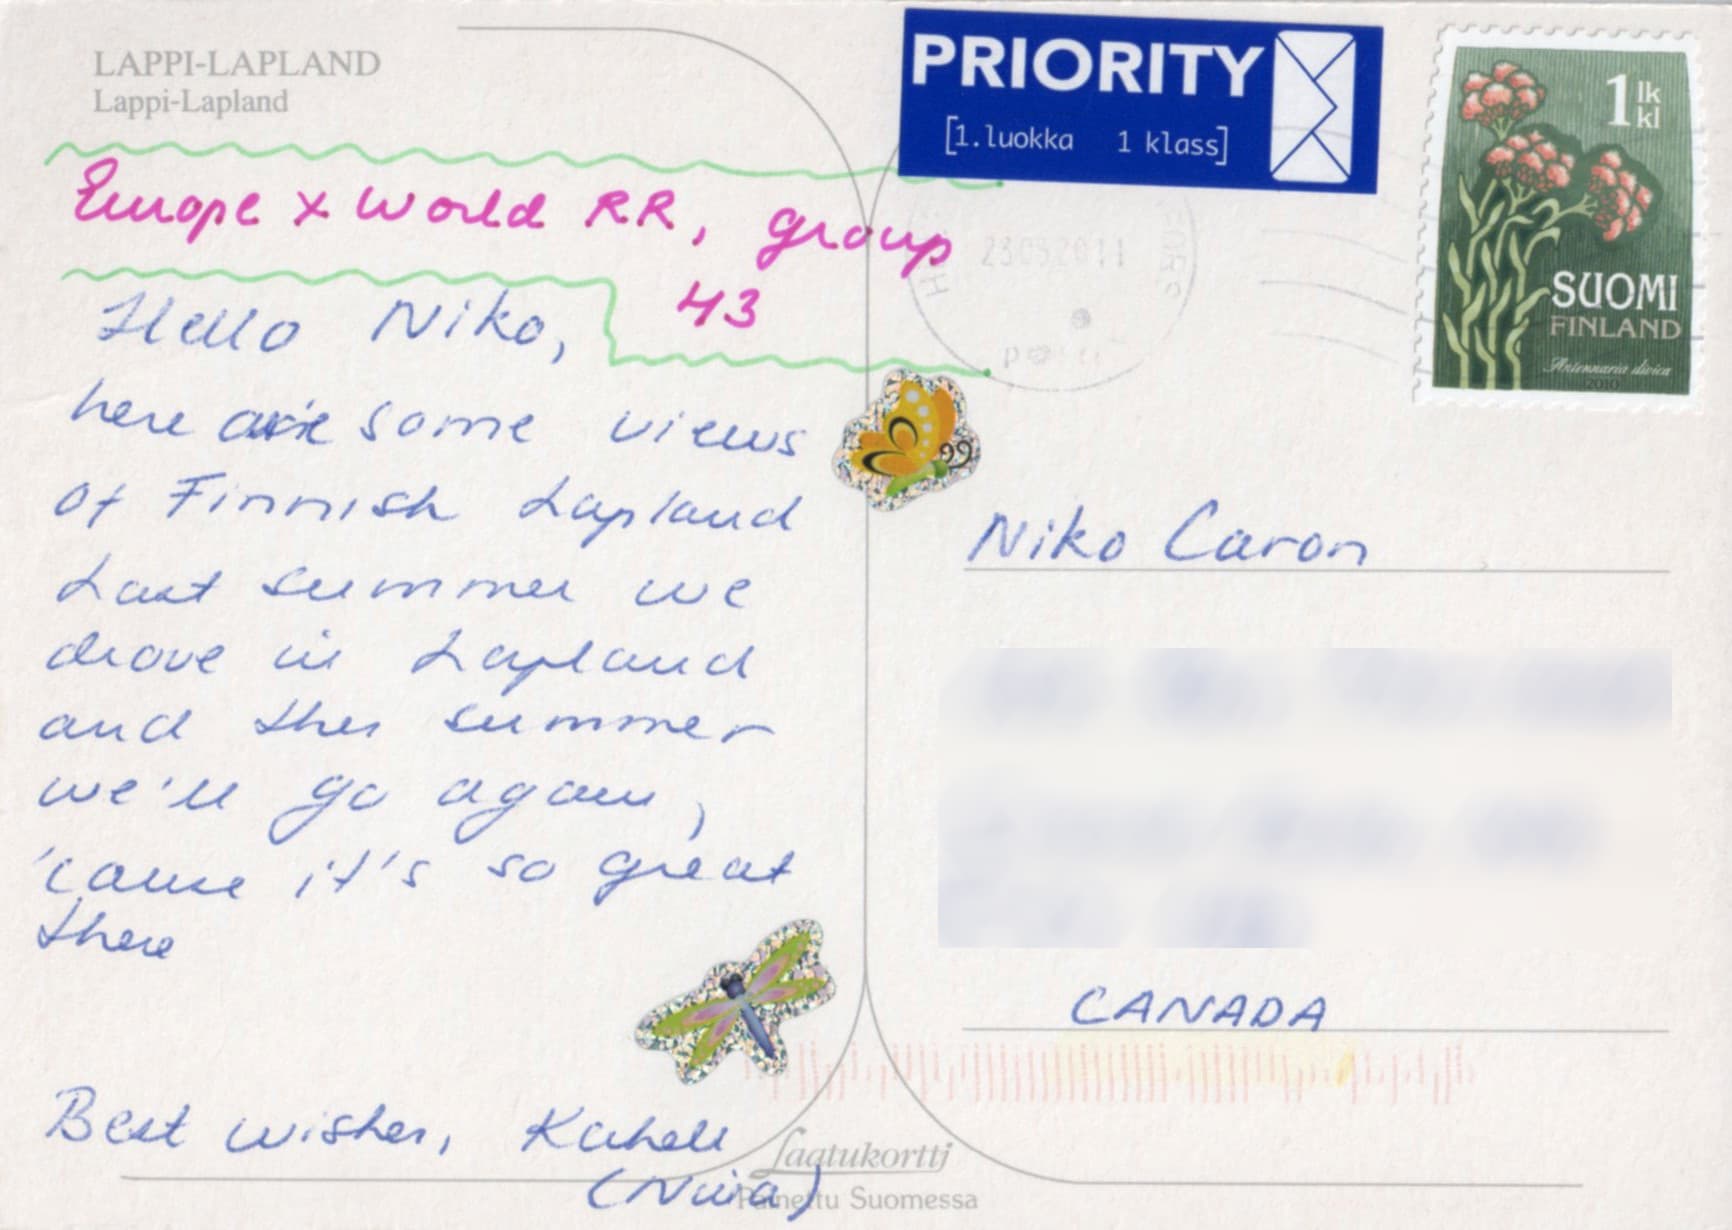 LAPPI-LAPLAND
Lappi-Lapland
PRIORITY
[1.luokka 1 klass]
1 lk
kl
SUOMI
FINLAND
Antennaria dioica
2010
Europe x World RR, group
43
Hello Niko,
here are some views
of Finnish Lapland
Last summer we
drove in Lapland
and this summer
we'll go again,
'cause it's so great
there
Best wishes,
Niko Caron
CANADA
Laatukortti
Painettu Suomessa